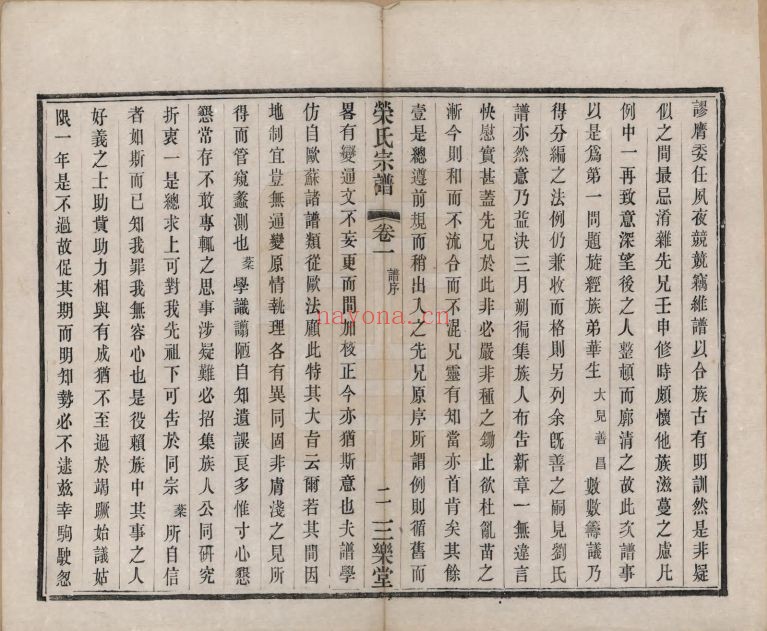 謬膺委任夙夜兢兢竊維譜以合族古有明訓然是非疑
似之間最忌淆雜先兄壬申修時頗懷他族滋蔓之慮凡
例中一再致意深望後之人整頓而廓清之故此次譜事
以是爲第一問題旋經族弟華生大兒善昌數數籌議乃
得分編之法例仍兼收而格則另列余旣善之嗣見劉氏
譜亦然意乃益決三月朔徧集族人布告新章一無違言
快慰實甚蓋先兄於此非必嚴非種之鋤止欲杜亂苗之
漸今則和而不流合而不混兄靈有知當亦首肯矣其餘
壹是總遵前規而稍出入之先兄原序所謂例則循舊而
榮氏宗譜 卷一 譜序 二 三樂堂
畧有變通文不妄更而間加校正今亦猶斯意也夫譜學
仿自歐蘇諸譜類從歐法顧此特其大旨云爾若其間因
地制宜豈無通變原情執理各有異同固非膚淺之見所
得而管窺蠡測也棻學識譾陋自知遺誤良多惟寸心懇
懇常存不敢專輒之思事涉疑難必招集族人公同研究
折衷一是總求上可對我先祖下可告於同宗棻所自信
者如斯而已知我罪我無容心也是役賴族中其事之人
好義之士助貲助力相與有成猶不至過於竭蹶始議姑
限一年是不過故促其期而明知勢必不逮玆幸駒駛忽
nayona.cn